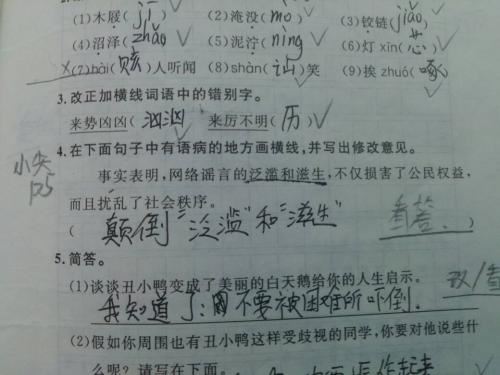 (1)木屐(jī) (2)淹没(mò) (3)铰链(jiǎo)
(4)沼泽(zhǎo) (5)泥泞(nìng) (6)灯xīn(芯)
(7)hài(赅)人听闻 (8)shàn(讪)笑 (9)挨zhuó(啄)
3.改正加横线词语中的错别字。
来势凶凶(汹汹) 来厉不明(历)
4.在下面句子中有语病的地方画横线,并写出修改意见。
事实表明,网络谣言的泛滥和滋生,不仅损害了公民权益,
而且扰乱了社会秩序。
(颠倒“泛滥”和“滋生” )
5.简答。
(1)谈谈丑小鸭变成了美丽的白天鹅给你的人生启示。
我知道了:不要被困难所吓倒.
(2)假如你周围也有丑小鸭这样受歧视的同学,你要对他说些什
么呢?请写在下面。